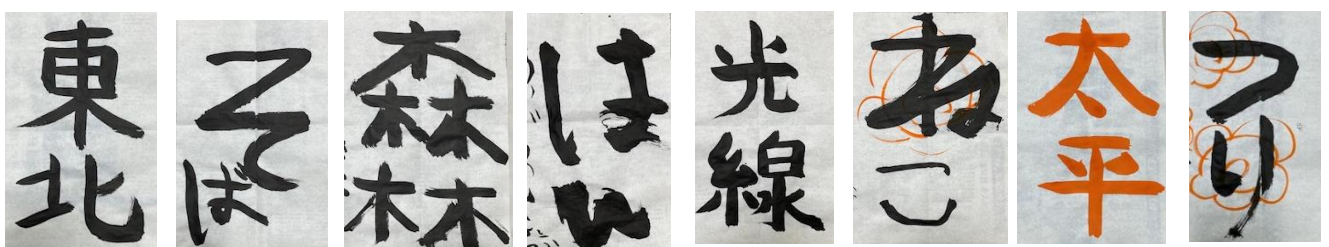 東北
そば
森林
はん
光線
ねこ
太平
つり